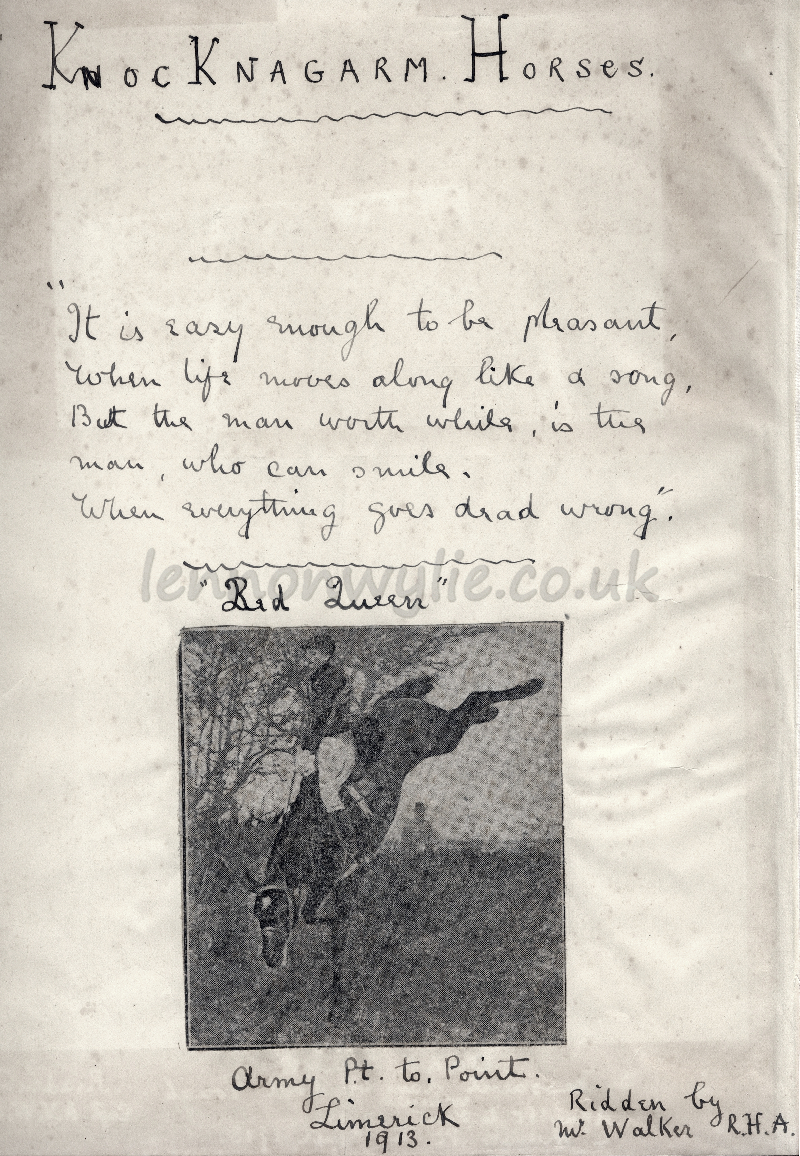 KNOCKNAGARM. HORSES.
"It is easy enough to be pleasant,
When life moves along like a song,
But the man worth while, is the
man, who can smile.
When everything goes dead wrong".
lennonwylie.co.uk
"Red Queen"
Army Pt. to. Point.
Limerick
1913.
Ridden by
Mr Walker R.H.A.